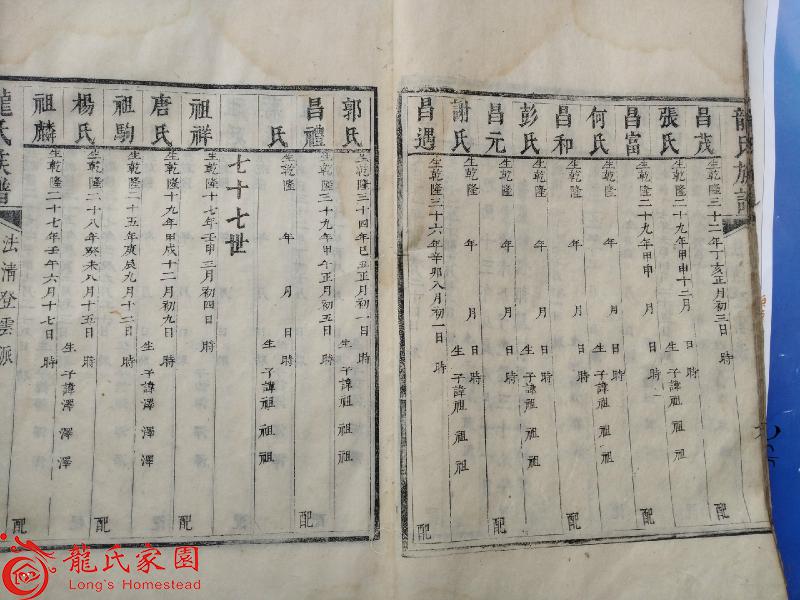 龍氏族譜
昌茂 生乾隆三十二年丁亥正月初三日 時 配
張氏 生乾隆二十九年甲申十二月 日 時 生 子諱祖 祖 祖
昌富 生乾隆二十九年甲申 月 日 時 配
何氏 生乾隆 年 月 日 時 生 子諱祖 祖 祖
昌和 生乾隆 年 月 日 時 配
彭氏 生乾隆 年 月 日 時 生 子諱祖 祖 祖
昌元 生乾隆 年 月 日 時 配
謝氏 生乾隆 年 月 日 時 生 子諱祖 祖 祖
昌遇 生乾隆三十六年辛卯八月初一日 時 配
郭氏 生乾隆三十四年己丑正月初一日 時 生 子諱祖 祖 祖
昌禮 生乾隆三十九年甲午正月初五日 時 配
氏 生乾隆 年 月 日 時 生 子諱祖 祖 祖
七十七世
祖祥 生乾隆十七年壬申三月初四日 時 配
唐氏 生乾隆十九年甲戌十二月初九日 時 生 子諱澤 澤 澤
祖駒 生乾隆二十五年庚辰九月十二日 時 配
楊氏 生乾隆二十八年癸未八月十五日 時 生 子諱澤 澤 澤
祖麟 生乾隆二十七年壬午六月十七日 時 配
龍氏族譜 法清登雲派
龍氏家園
Long's Homestead